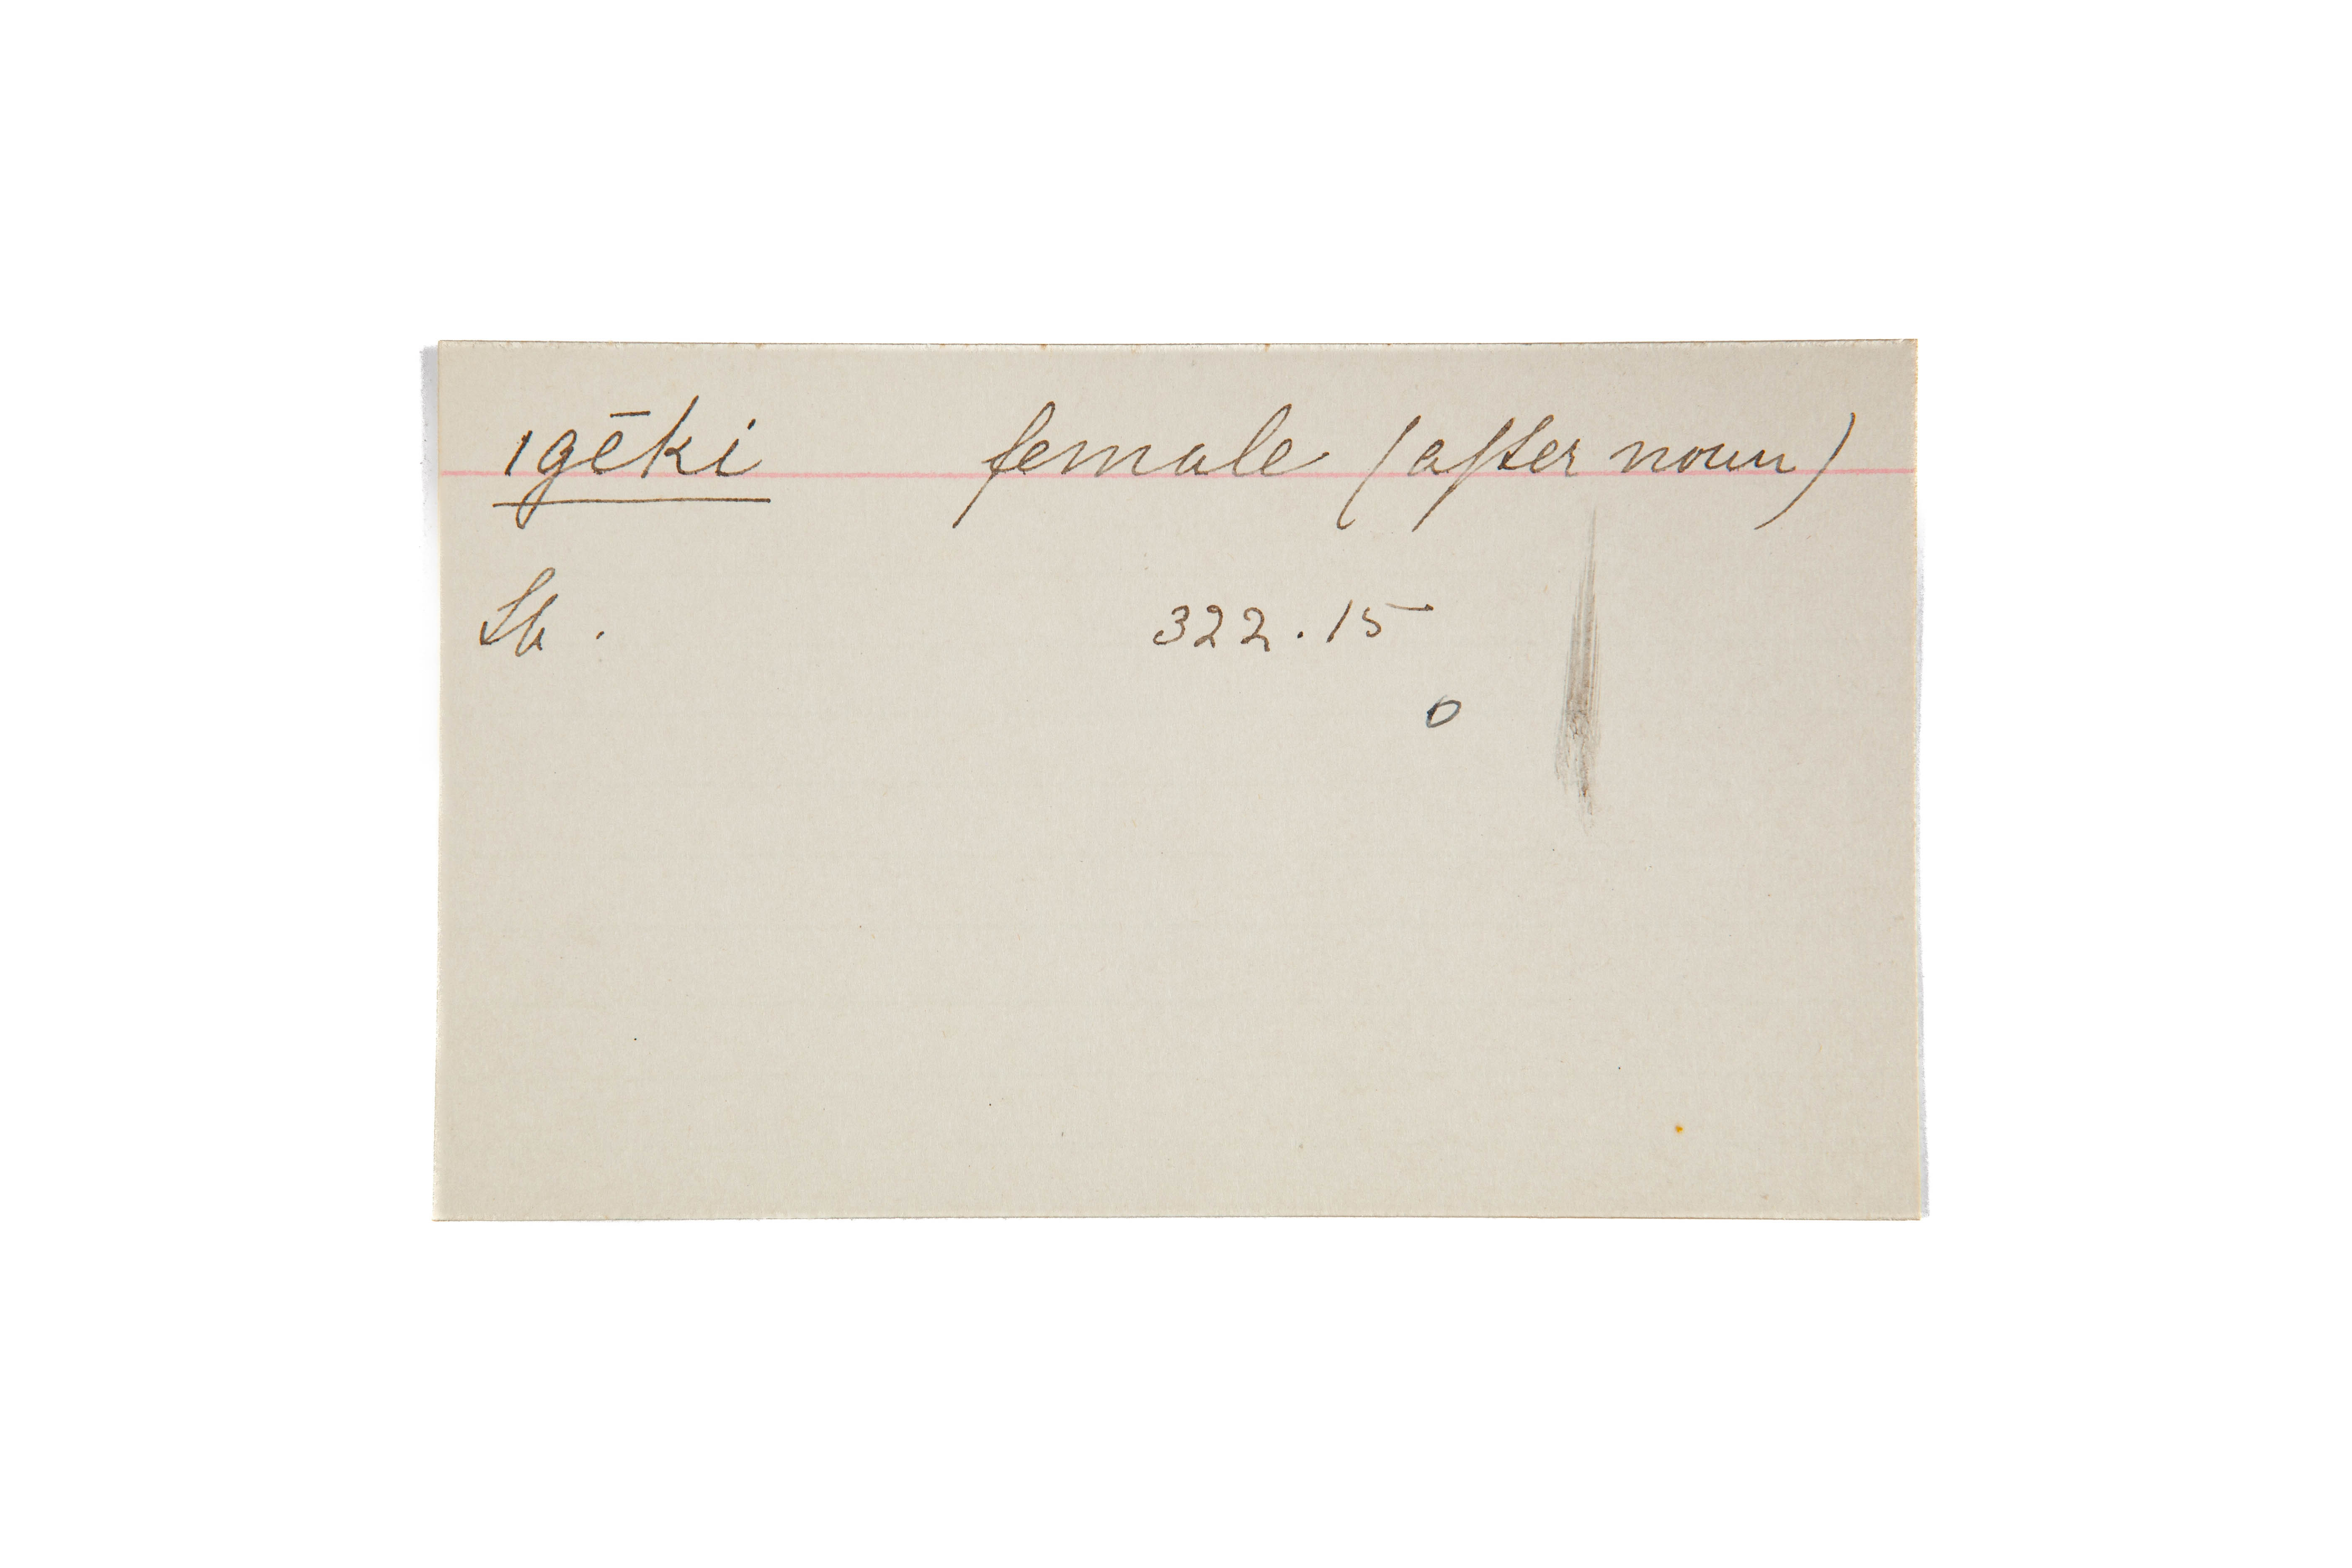 ıgēki female (after noun)
Sb. 322.15
o